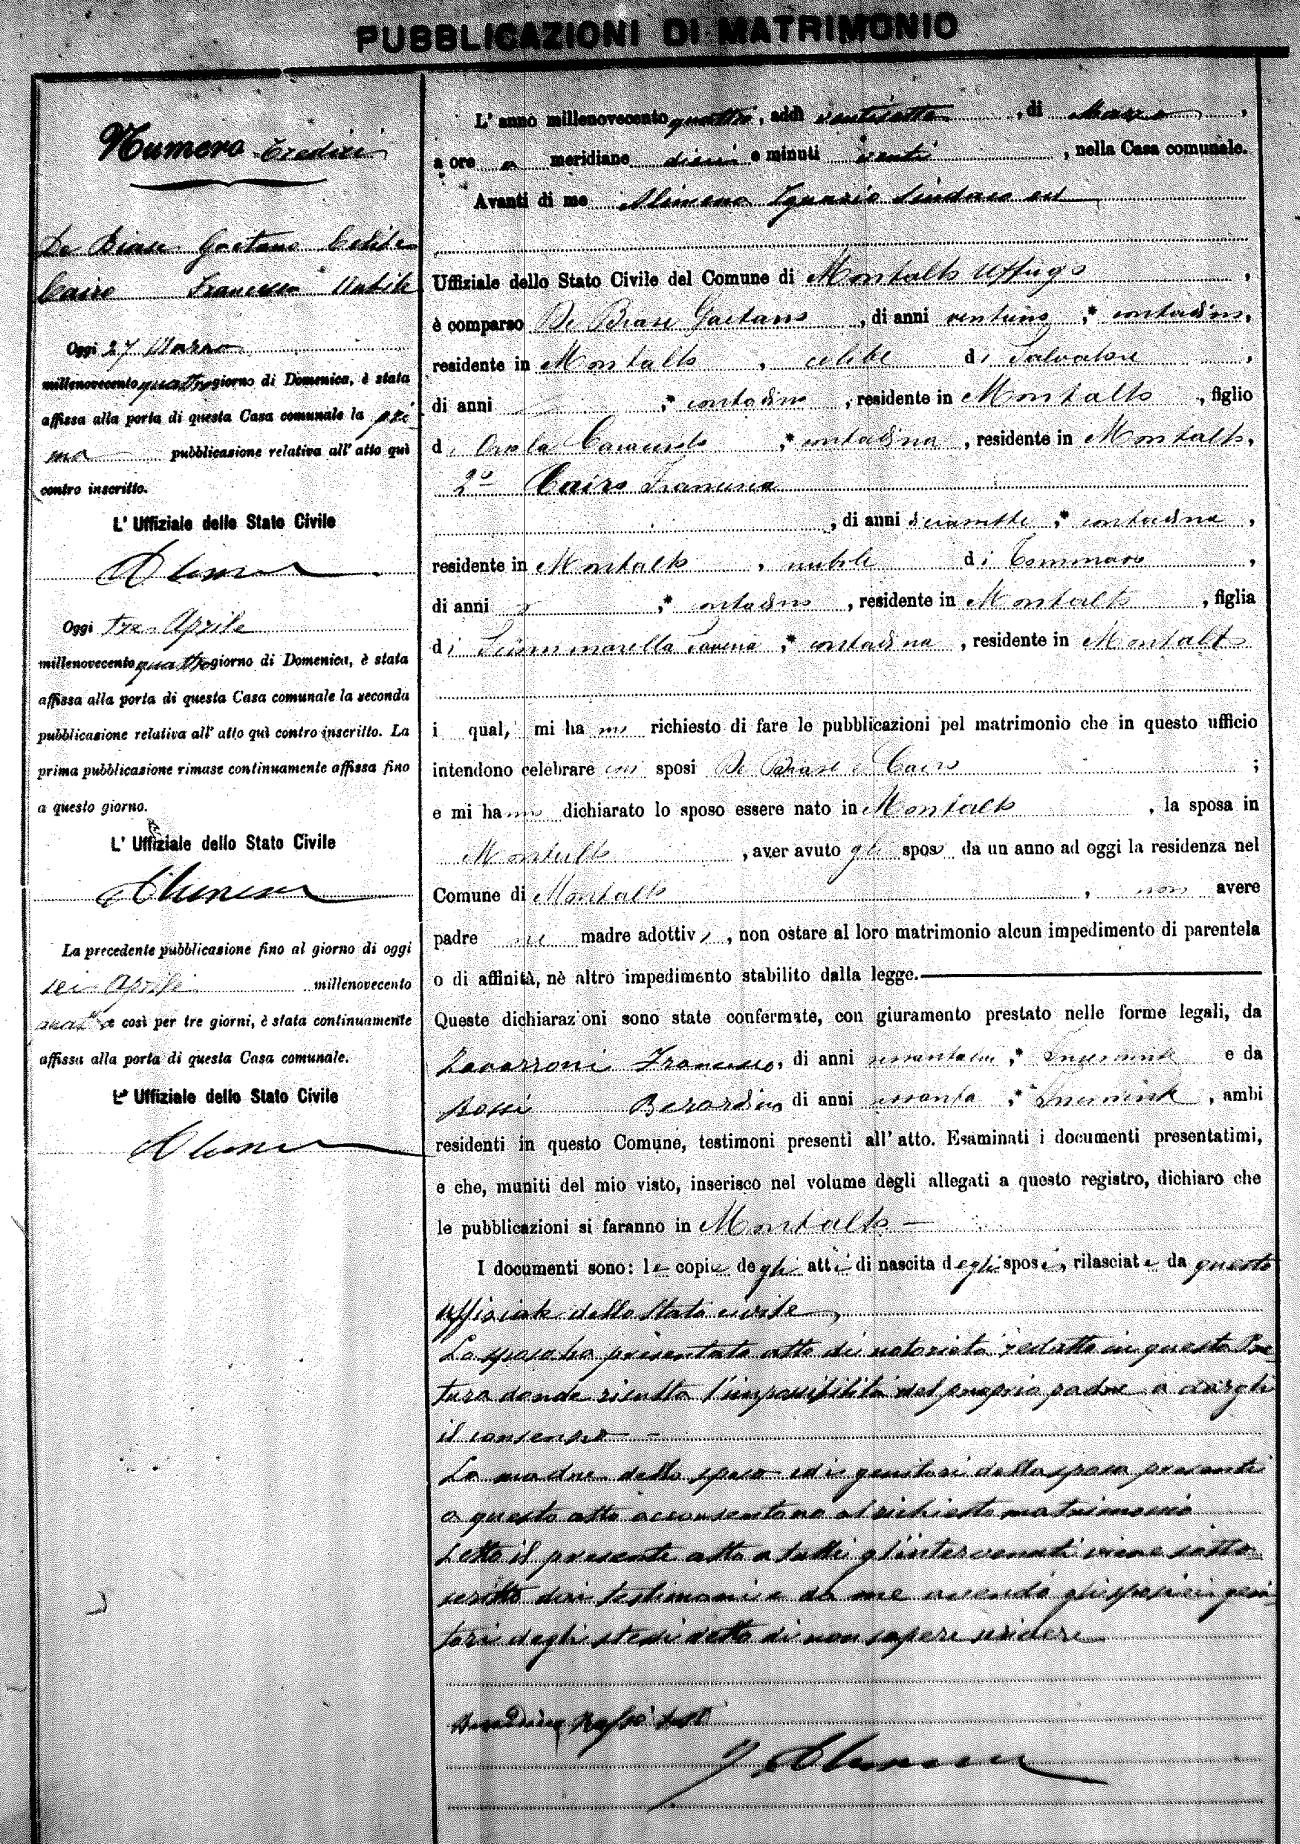 PUBBLICAZIONI DI MATRIMONIO
Numero tredici
De Biase Gaetano Celibe
Cairo Francesca Nubile
Oggi 27 Marzo
millenovecento quattro giorno di Domenica, è stata
affissa alla porta di questa Casa comunale la pri-
ma pubblicazione relativa all' atto quì
contro inscritto.
L' Uffiziale dello Stato Civile
Alimena
Oggi tre Aprile
millenovecento quattro giorno di Domenica, è stata
affissa alla porta di questa Casa comunale la seconda
pubblicazione relativa all' atto quì contro inscritto. La
prima pubblicazione rimase continuamente affissa fino
a questo giorno.
L' Uffiziale dello Stato Civile
Alimena
La precedente pubblicazione fino al giorno di oggi
sei Aprile millenovecento
quattro e così per tre giorni, è stata continuamente
affissa alla porta di questa Casa comunale.
L' Uffiziale dello Stato Civile
Alimena
L' anno millenovecento quattro, addì ventisette, di Marzo,
a ore a meridiane dieci e minuti venti, nella Casa comunale.
Avanti di me Alimena Ignazio Sindaco ed
Uffiziale dello Stato Civile del Comune di Montalto Uffugo,
è comparso De Biase Gaetano, di anni ventuno,* contadino,
residente in Montalto, celibe di Salvatore,
di anni ,* contadino, residente in Montalto, figlio
di ,* contadina, residente in Montalto,
2° Cairo Francesca
, di anni diciassette,* contadina,
residente in Montalto, nubile di Tommaso,
di anni ,* contadino, residente in Montalto, figlia
di Saveria,* contadina, residente in Montalto
i quali mi hanno richiesto di fare le pubblicazioni pel matrimonio che in questo ufficio
intendono celebrare essi sposi De Biase e Cairo ;
e mi hanno dichiarato lo sposo essere nato in Montalto, la sposa in
Montalto, aver avuto gli sposi da un anno ad oggi la residenza nel
Comune di Montalto, non avere
padre ne madre adottivi, non ostare al loro matrimonio alcun impedimento di parentela
o di affinità, nè altro impedimento stabilito dalla legge.
Queste dichiarazioni sono state confermate, con giuramento prestato nelle forme legali, da
Zavarroni Francesco, di anni ,* Inserviente e da
Rossi Berardino, di anni sessanta,* Inserviente, ambi
residenti in questo Comune, testimoni presenti all' atto. Esaminati i documenti presentatimi,
e che, muniti del mio visto, inserisco nel volume degli allegati a questo registro, dichiaro che
le pubblicazioni si faranno in Montalto
I documenti sono: le copie degli atti di nascita degli sposi, rilasciate da questo
Uffiziale dello Stato civile
Lo sposo ha presentato atto di notorietà redatto in questa Pre-
tura donde risulta l'impossibilità nel proprio padre a dargli
il consenso
La madre dello sposo ed i genitori della sposa presenti
a questo atto acconsentono al richiesto matrimonio
Letto il presente atto a tutti gl'intervenuti viene sotto
scritto dai testimoni e da me avendo gli sposi e i geni-
tori degli stessi detto di non sapere scrivere
Berardino Rossi test
I Alimena